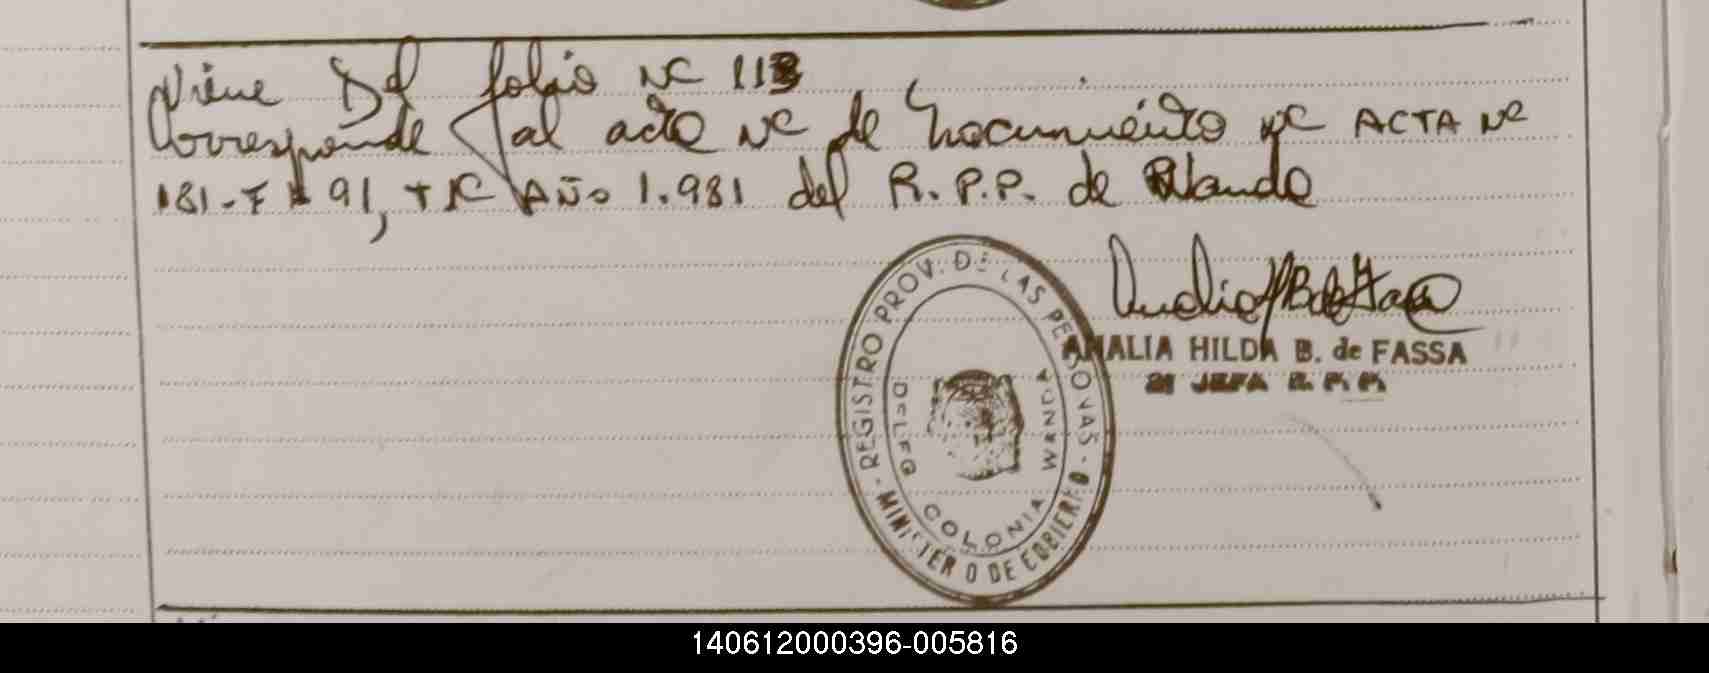 Viene Del folio Nº 113
Corresponde al acta Nº de Nacimiento Nº ACTA Nº
181-F 91, Tº AÑO 1.981 del R.P.P. de
- REGISTRO PROV. DE LAS PERSONAS -
MINISTERIO DE GOBIERNO
COLONIA
AMALIA HILDA B. de FASSA
JEFA R. P. P.
140612000396-005816